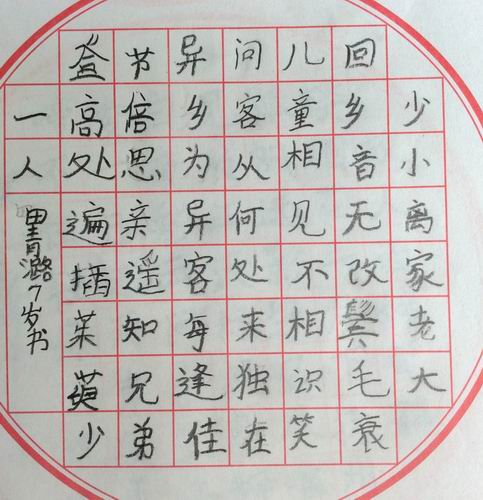 少小离家老大
回乡音无改鬓毛衰
儿童相见不相识笑
问客从何处来独在
异乡为异客每逢佳
节倍思亲遥知兄弟
登高处遍插茱萸少
一人
田青潞7岁书